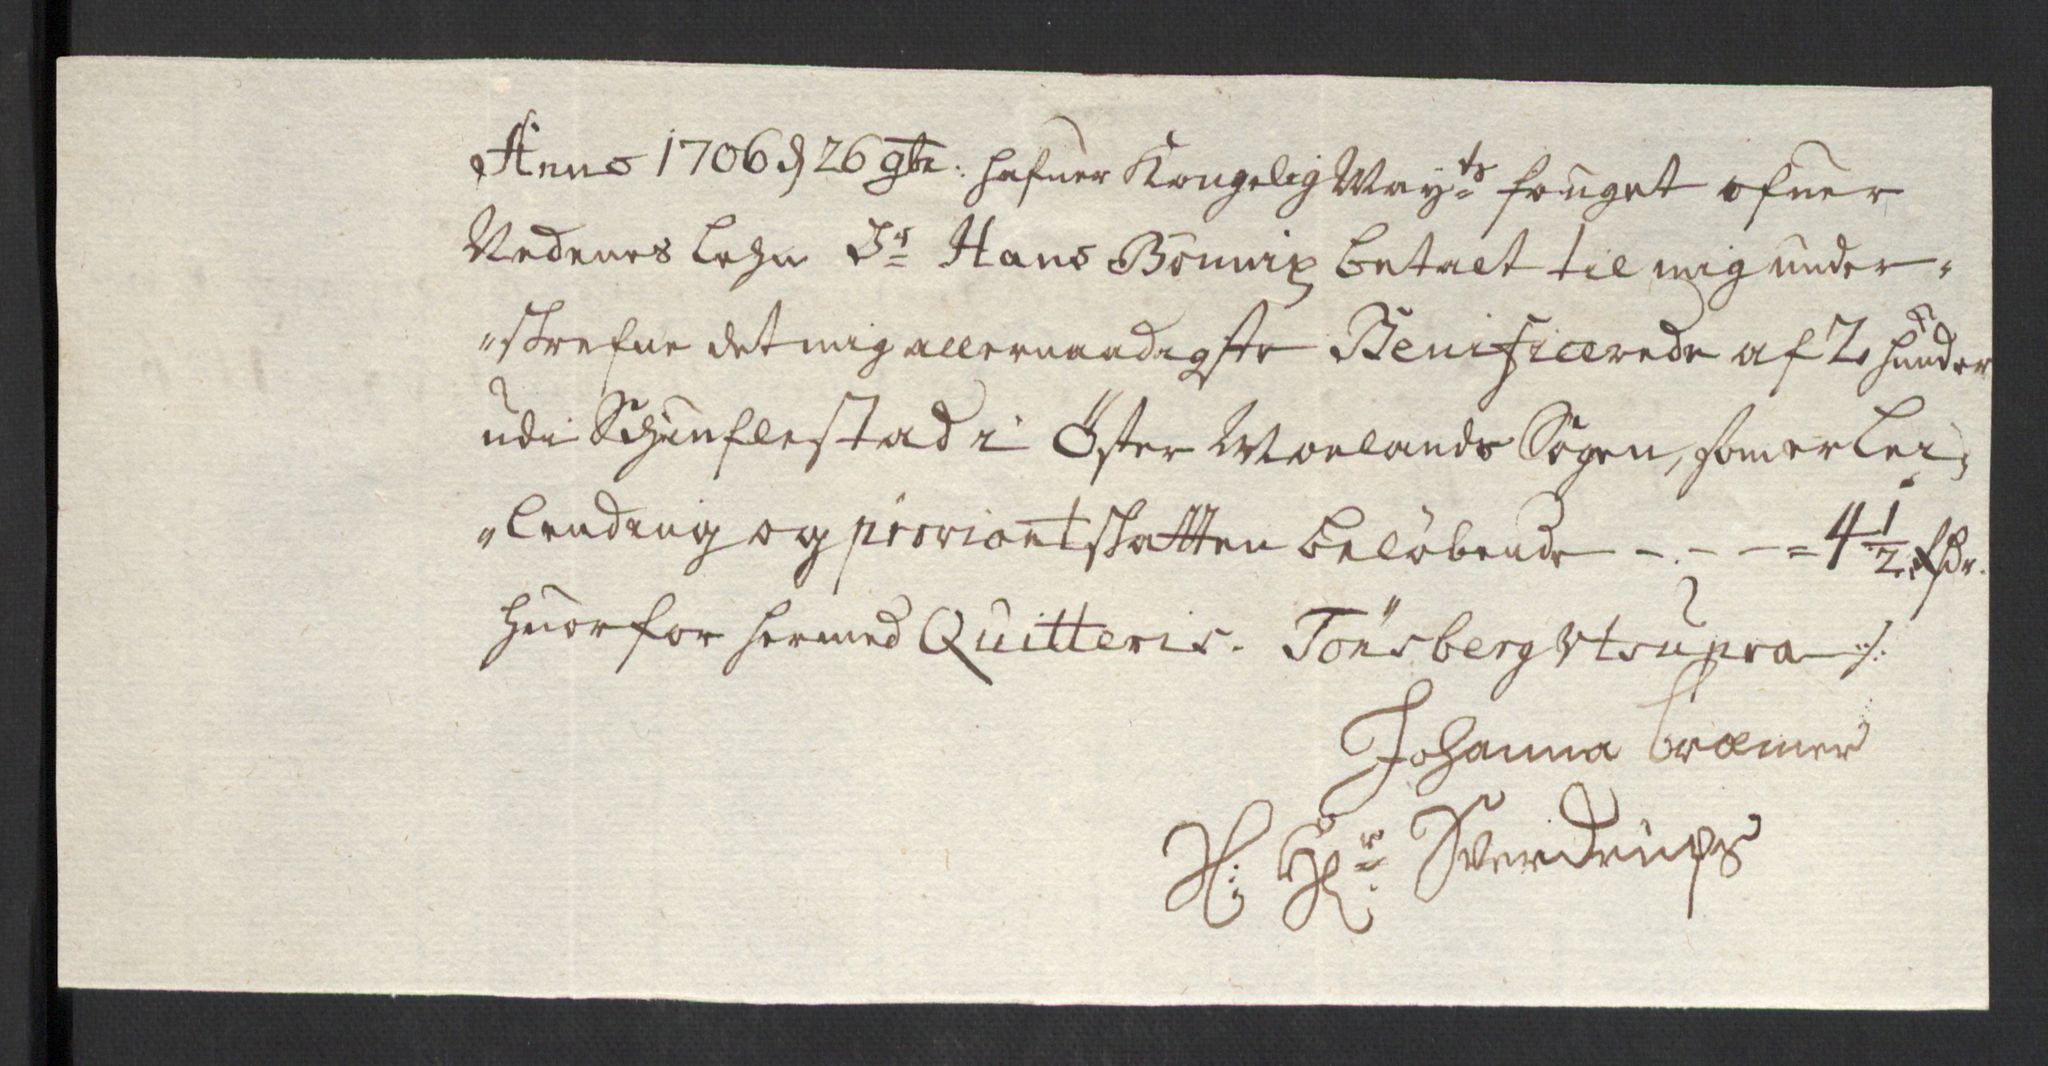 Anno 1706 d 26 9br: hafuer Kongelig May:ts fouget ofuer
Nedenes Lehn Sr Hans Bönnix betalt til mig under-
"skrefne det mig allernaadigste Benificerede af 2 hunder
udi i Öster Moelands Sogen, som er Lei-
"lending og proviant skatten beløbende - . - - = 4 1/2 rdr.
huorfor hermed Quitteris. Tönsberg Vt supra ./.
Johanna Cræmer
H: Hr: Sverdrups